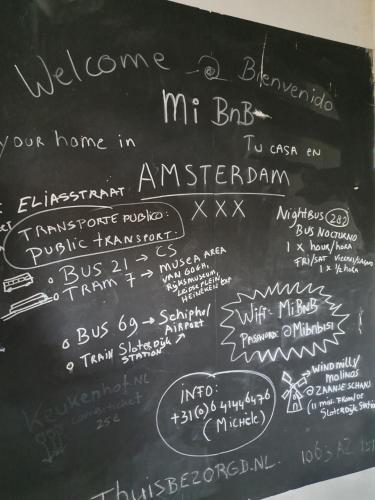 Welcome @ Bienvenido
Mi BnB
your home in
Tu casa en
AMSTERDAM
ELIASSTRAAT
XXX
TRANSPORTE PUBLICO:
PUBLIC TRANSPORT:
BUS 21 → CS
TRAM 7 → MUSEA AREA
VAN GOGH,
RIJKSMUSEUM,
LEIDSEPLEIN
HEINEKEN
BUS 69 → Schiphol
AIRPORT
TRAIN Sloterdijk
STATION
NightBUS 282
BUS NOCTURNO
1 x hour/hora
FRI/SAT
1 x ½ hora
Wifi - MiBnB
Password:
KeukenhoF.NL
combiticket
25€
INFO:
+31(0)6 41446476
(Michèle)
WINDMILLS/
MOLINOS
@ZAANSE SCHANS
Sloterdijk Station
Thuisbezorgd.nl
1063 AZ